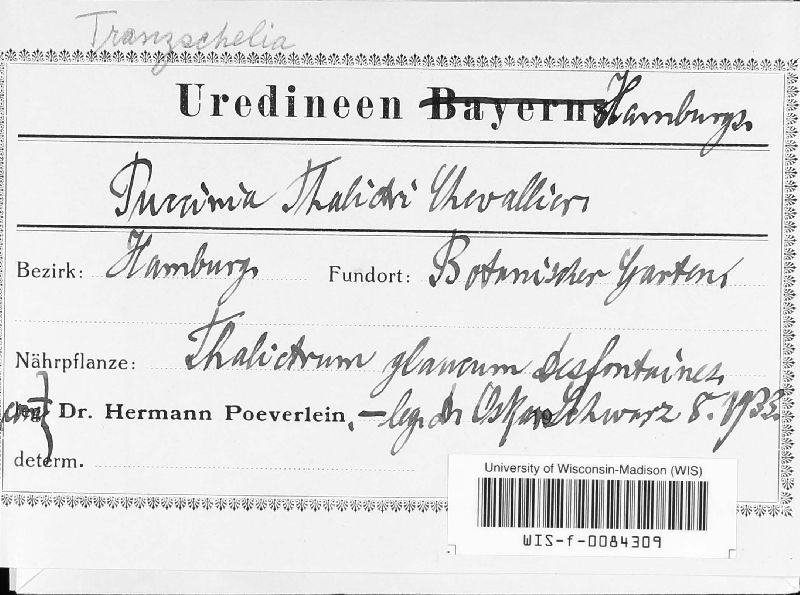 Tranzschelia
Uredineen Bayerns Hamburgs.
Puccinia Thalictri Chevallier.
Bezirk: Hamburg. Fundort: Botanischer Garten.
Nährpflanze: Thalictrum glaucum Desfontaines.
Dr. Hermann Poeverlein. — leg. Dr. Oskar Schwarz 8. 1933.
determ.
University of Wisconsin-Madison (WIS)
WIS-f-0084309